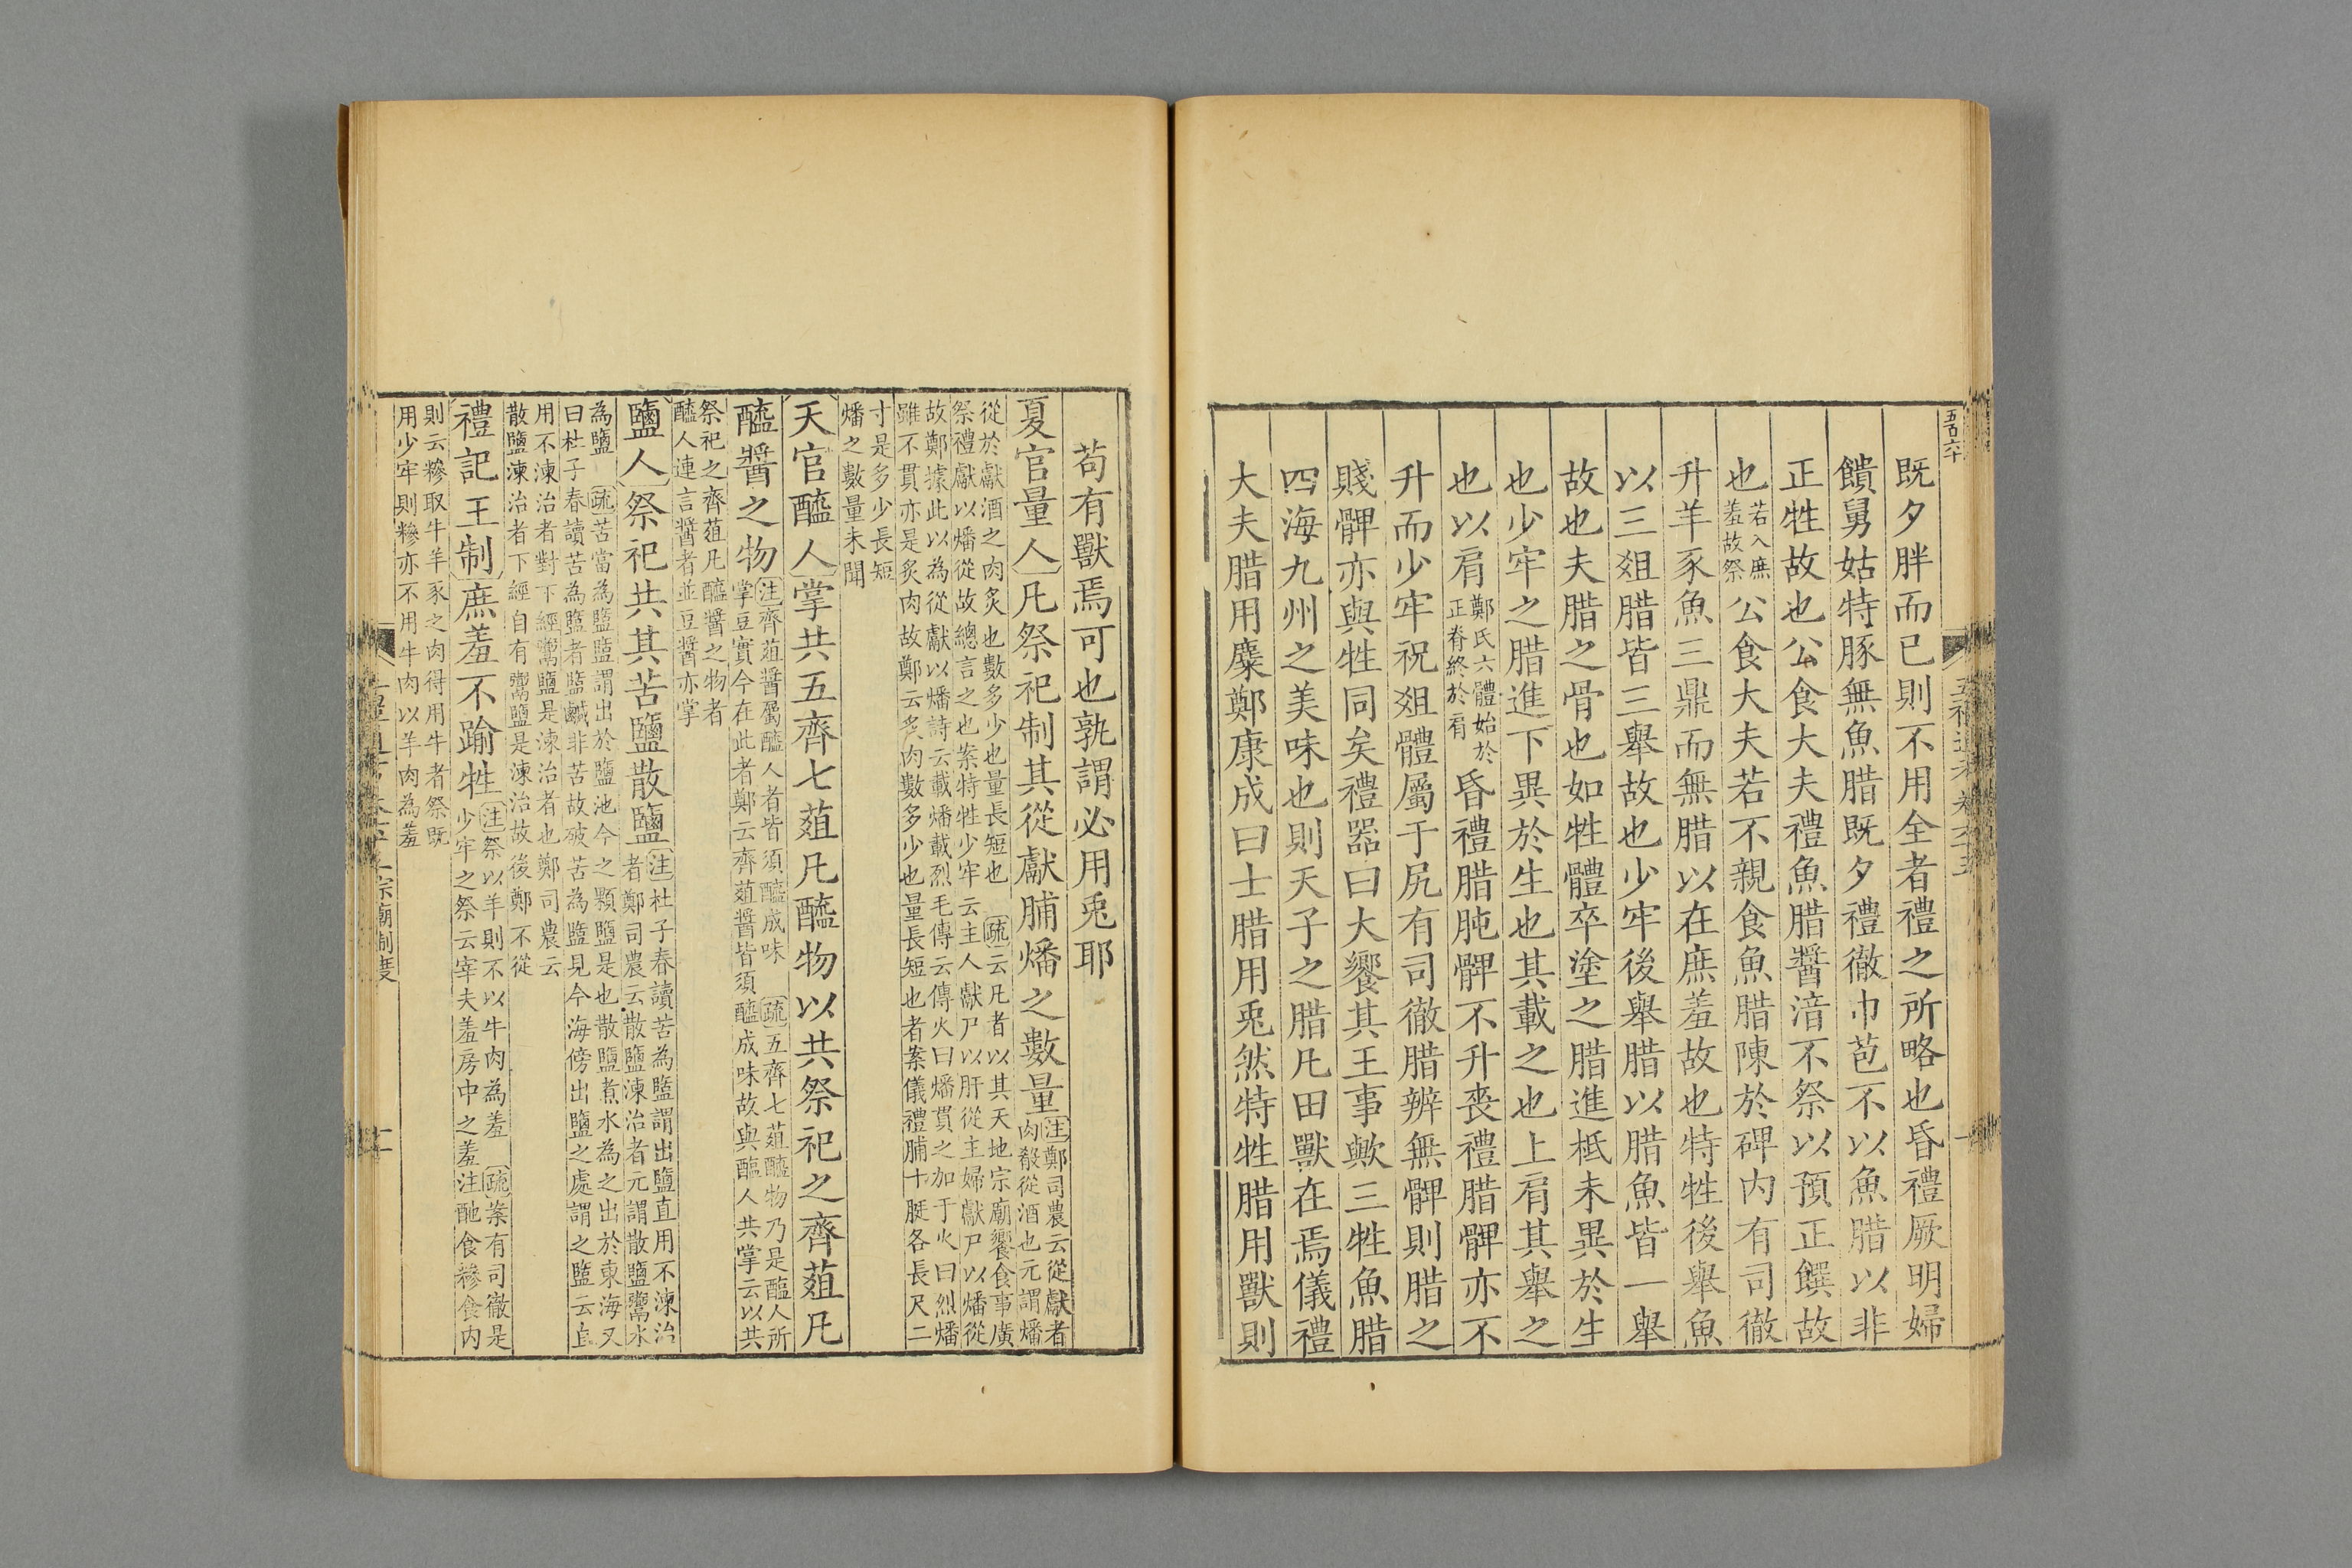 五百六十
五禮通考 卷六十五
既夕胖而已則不用全者禮之所略也昏禮厥明婦
饋舅姑特豚無魚腊既夕禮徹巾苞不以魚腊以非
正牲故也公食大夫禮魚腊醬湆不祭以預正饌故
也若入庶羞故祭公食大夫若不親食魚腊陳於碑内有司徹
升羊豕魚三鼎而無腊以在庶羞故也特牲後舉魚
以三俎腊皆三舉故也少牢後舉腊以腊魚皆一舉
故也夫腊之骨也如牲體卒塗之腊進柢未異於生
也少牢之腊進下異於生也其載之也上肩其舉之
也以肩鄭氏六體始於正脊終於肩昏禮腊肫髀不升喪禮腊髀亦不
升而少牢祝俎體屬于尻有司徹腊辨無髀則腊之
賤髀亦與牲同矣禮器曰大饗其王事歟三牲魚腊
四海九州之美味也則天子之腊凡田獸在焉儀禮
大夫腊用麋鄭康成曰士腊用兎然特牲腊用獸則
苟有獸焉可也孰謂必用兎耶
夏官量人凡祭祀制其從獻脯燔之數量注鄭司農云從獻者肉殽從酒也元謂燔
從於獻酒之肉炙也數多少也量長短也 疏云凡者以其天地宗廟饗食事廣
祭禮獻以燔從故總言之也案特牲少牢云主人獻尸以肝從主婦獻尸以燔從
故鄭據此以為從獻以燔詩云載燔載烈毛傳云傅火曰燔貫之加于火曰烈燔
雖不貫亦是炙肉故鄭云炙肉數多少也量長短也者案儀禮脯十脡各長尺二
寸是多少長短
燔之數量未聞
天官醯人掌共五齊七菹凡醯物以共祭祀之齊菹凡
醯醬之物注齊菹醬屬醯人者皆須醯成味 疏五齊七菹醯物乃是醢人所掌豆實今在此者鄭云齊菹醬皆須醯成味故與醢人共掌云以共
祭祀之齊菹凡醯醬之物者
醯人連言醬者並豆醬亦掌
鹽人祭祀共其苦鹽散鹽注杜子春讀苦為盬謂出鹽直用不湅治者鄭司農云散鹽湅治者元謂散鹽鬻水
為鹽 疏苦當為盬盬謂出於鹽池今之顆鹽是也散鹽煮水為之出於東海又
曰杜子春讀苦為盬者盬鹹非苦故破苦為盬見今海傍出鹽之處謂之盬云直
用不湅治者對下經鬻鹽是湅治者也鄭司農云
散鹽湅治者下經自有鬻鹽是湅治故後鄭不從
禮記王制庶羞不踰牲注祭以羊則不以牛肉為羞 疏案有司徹是少牢之祭云宰夫羞房中之羞注酏食糝食内
則云糝取牛羊豕之肉得用牛者祭既
用少牢則糝亦不用牛肉以羊肉為羞
宗廟制度